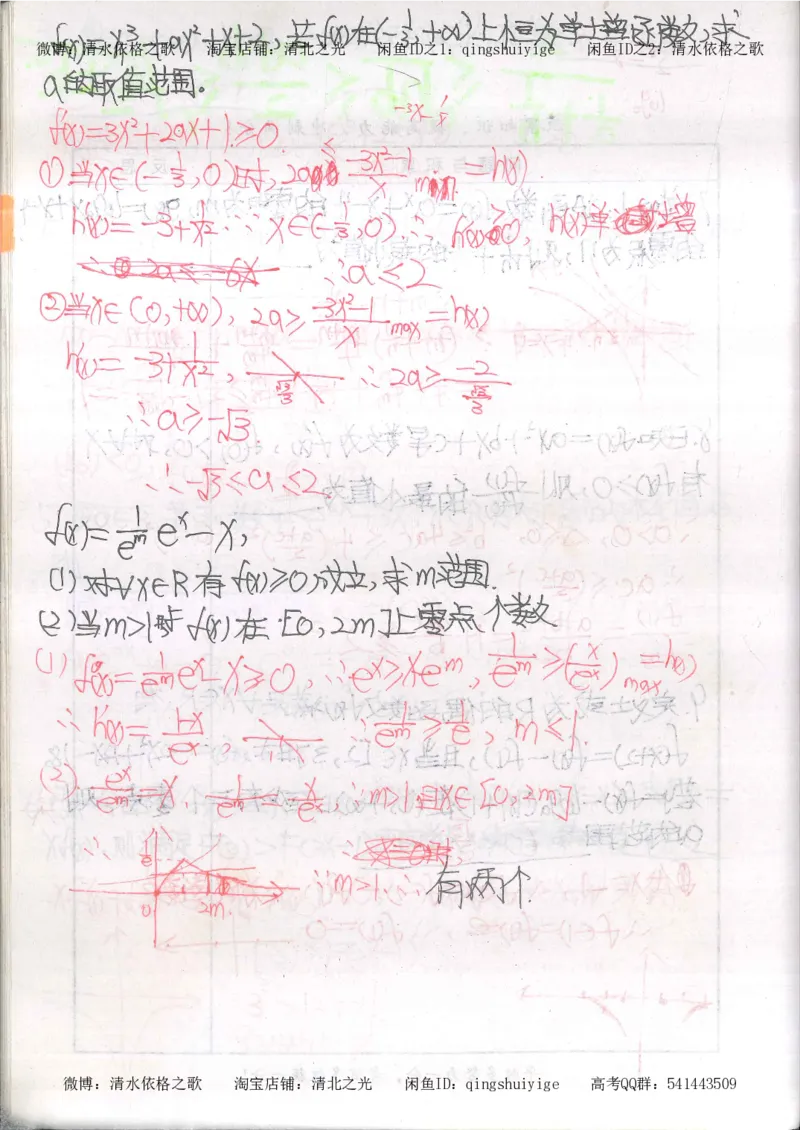 f(x)=x³+ax²+x+2,若f(x)在(-1/3,+∞)上恒为单增函数,求
微博:清水依格之歌 淘宝店铺:清北之光 闲鱼ID之1:qingshuiyige 闲鱼ID之2:清水依格之歌
a的取值范围。
-3x-1/x
f'(x)=3x²+2ax+1≥0
①当x∈(-1/3,0)时,2a≤(-3x²-1)/x min=h(x)
h'(x)=-3+1/x² ∵x∈(-1/3,0)∴h'(x)≥0,h(x)单增
∴a≤2
②当x∈(0,+∞),2a≥(-3x²-1)/x max=h(x)
h'(x)=-3+1/x², √3/3 ∴2a≥-2/(√3/3)
∴a≥-√3
∴-√3≤a≤2
f(x)=1/e^m e^x-x,
(1)对∀x∈R有f(x)≥0成立,求m范围.
(2)当m>1时f(x)在[0,2m]上零点个数
(1) f(x)=1/e^m e^x-x≥0,∴e^x≥xe^m,1/e^m≥(x/e^x)max=h(x)
∴h'(x)=(1-x)/e^x, ∴1/e^m≥1/e,m≤1
(2) e^x/e^m=x,1/e^m=x/e^x,∵m>1且x∈[0,2m]
∴ 1/e 0 2m ∵m>1∴有两个.
微博:清水依格之歌 淘宝店铺:清北之光 闲鱼ID:qingshuiyige 高考QQ群:541443509